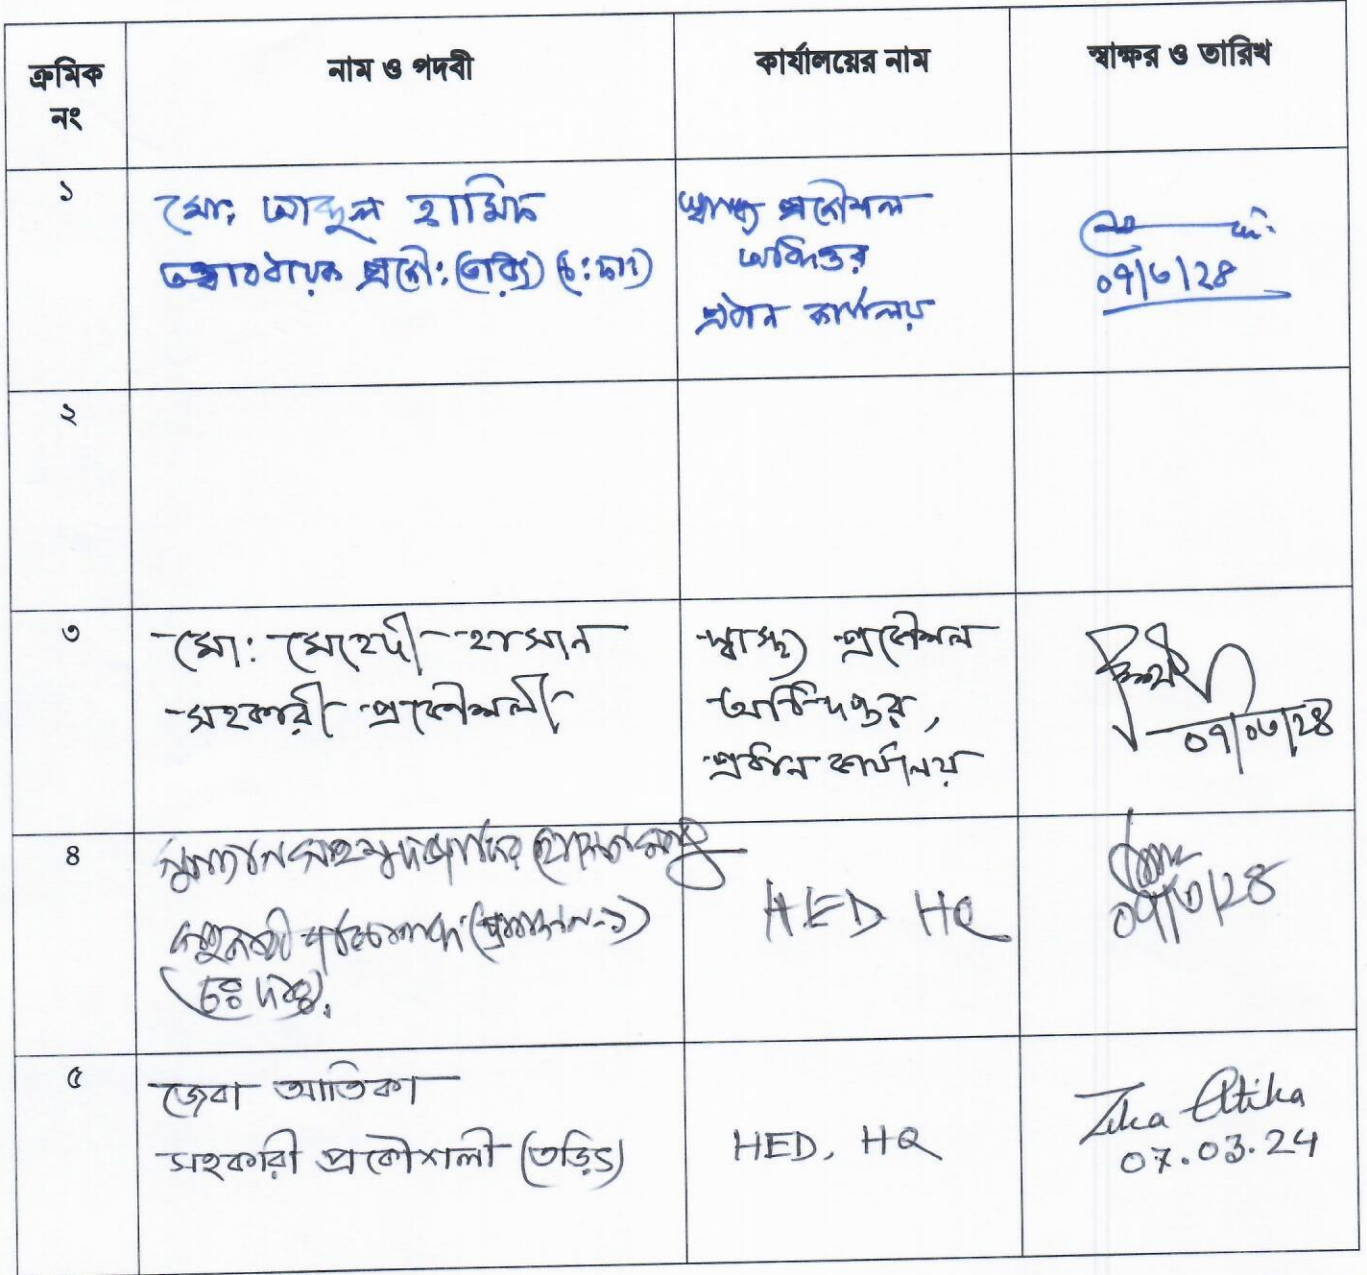 ক্রমিক নং
নাম ও পদবী
কার্যালয়ের নাম
স্বাক্ষর ও তারিখ
১
মো: আব্দুল হামিদ
তত্ত্বাবধায়ক প্রকৌ: (তড়িৎ) (চ:দা:)
স্বাস্থ্য প্রকৌশল
অধিদপ্তর
প্রধান কার্যালয়
০৭/৩/২৪
২
৩
মো: মেহেদী হাসান
সহকারী প্রকৌশলী
স্বাস্থ্য প্রকৌশল
অধিদপ্তর,
প্রধান কার্যালয়
০৭/০৩/২৪
৪
সহকারী পরিচালক (প্রশাসন-১)
(চঃ দাঃ)
HED HQ
০৭/৩/২৪
৫
জেবা আতিকা
সহকারী প্রকৌশলী (তড়িৎ)
HED, HQ
Zeba Atika
07.03.24